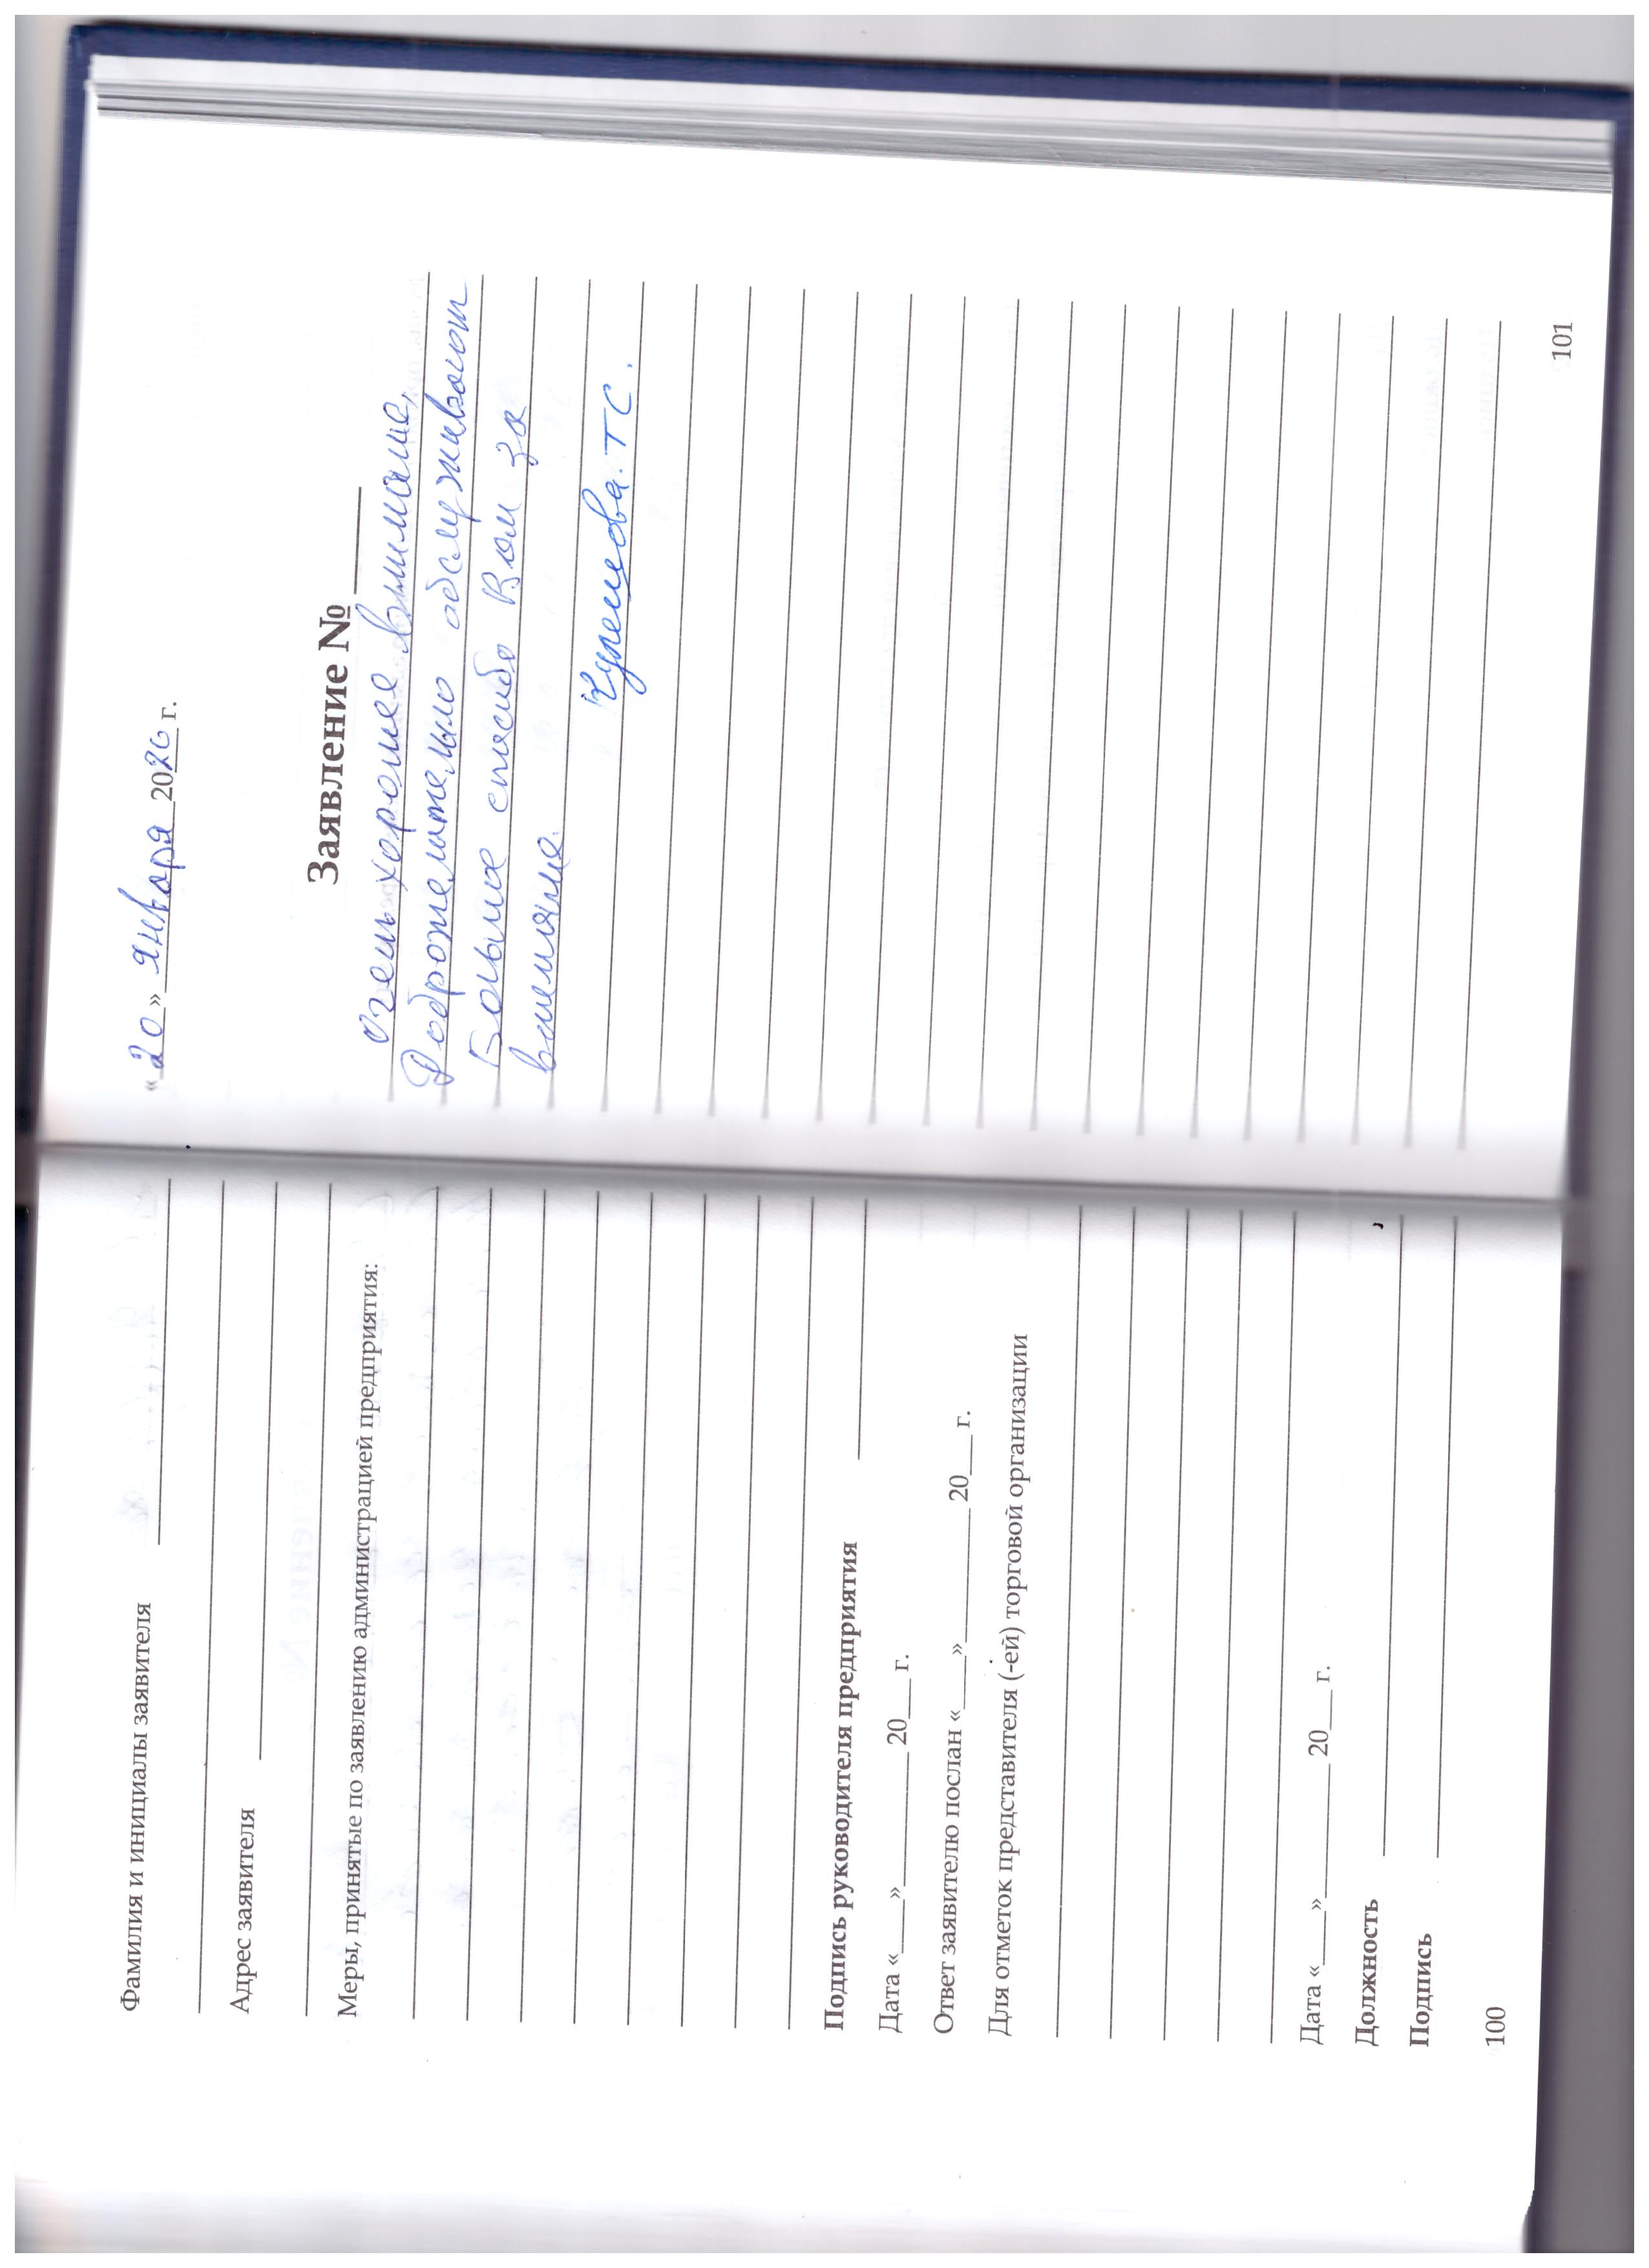 Фамилия и инициалы заявителя
Адрес заявителя
Меры, принятые по заявлению администрацией предприятия:
Подпись руководителя предприятия
Дата «___»__________ 20___ г.
Ответ заявителю послан «___»__________ 20___ г.
Для отметок представителя (-ей) торговой организации
Дата «___»__________ 20___ г.
Должность
Подпись
100
«20» января 2026 г.
Заявление №
Очень хорошее внимание,
Доброжелательно обслуживают
Большое спасибо Вам за
внимание.
ТС.
101